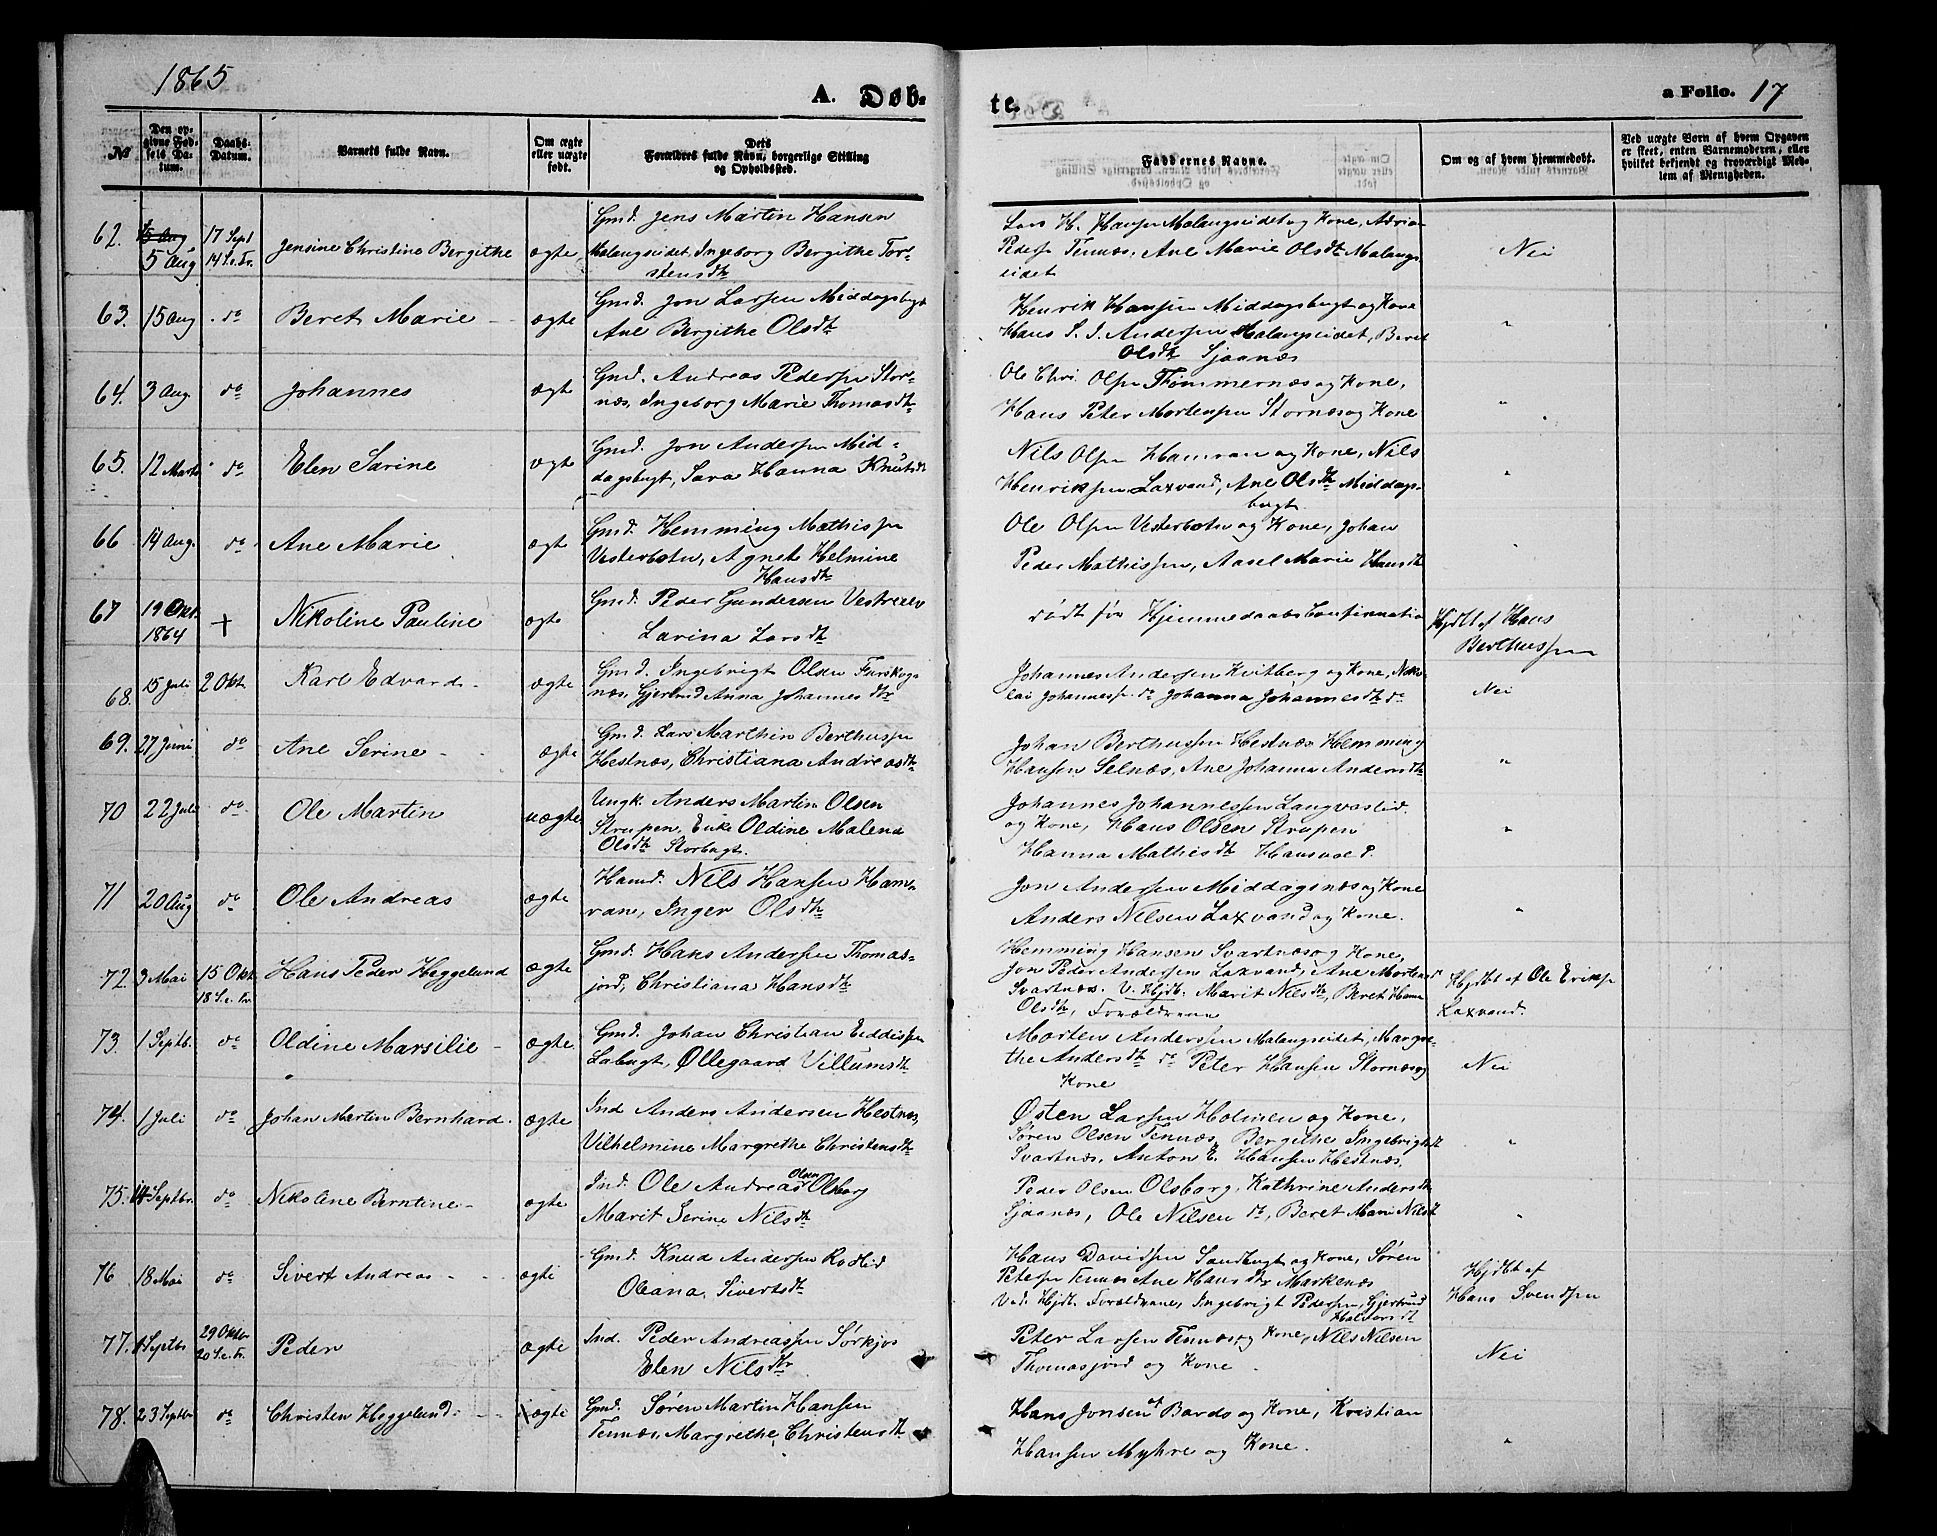 1865
A. Døb-
te.
a Folio. 17
No
Den op-
givne Fød-
sels Da-
tum.
Daabs-
Datum.
Barnets fulde Navn.
Om ægte
eller uægte
født.
Dets
Forældres fulde Navn, borgerlige Stilling
og Opholdssted.
Faddernes Navne.
Om og af hvem hjemmedøbt.
Ved uægte Børn af hvem Opgaven
er skeet, enten Barnemoderen, eller
hvilket bekjendt og troværdigt Med-
lem af Menigheden.
62. 5 Aug 17 Sept Jensine Christine Bergithe ægte Gmd. Jens Martin Hansen
5 Aug 14 S.e.Tr. Malangseidet, Ingeborg Bergithe Tor-
stensdtr
Lars H. Hansen Malangseidet og Kone, Adrian
Pedersen Tennæs, Ane Marie Olsdtr Malangs-
eidet
Nei
63. 15 Aug do Beret Marie ægte Gmd. Jon Larsen Middagsbugt
Ane Bergithe Olsdtr
Henrik Hansen Middagsbugt og Kone
Hans S. J. Andersen Malangseidet, Beret
Olsdtr Sjaanæs
"
64. 3 Aug. do Johannes ægte Gmd. Andreas Pedersen Stor-
næs, Ingeborg Marie Thomasdtr
Ole Chri. Olsen Tømmernæs og Kone,
Hans Peter Mortensen Stornæs og Kone
"
65. 12 Marts do Elen Sarine ægte Gmd. Jon Andersen Mid-
dagsbugt, Sara Hanna Knutsdtr
Nils Olsen Hamvan og Kone, Nils
Henriksen Laxvand, Ane Olsdtr Middags-
bugt.
"
66 14 Aug. do Ane Marie ægte Gmd. Hemming Mathissen
Vesterbotn, Agnete Helmine
Hansdtr
Ole Olsen Vesterbotn og Kone, Johan
Peder Mathissen, Aasel Marie Hansdtr
"
67 19 Okt. + Nikoline Pauline ægte Gmd. Peder Gundersen Vestreelv
1864 Larina Larsdtr
dødt før Hjemmedaabs Confirmation
Hjdbt af Hans
Berthussen
68. 15 Juli 2 Okt. Karl Edvard ægte Gmd. Ingebrigt Olsen
næs, Gjertrud Anna Johannesdtr
Johannes Andersen Kvitberg og Kone, Niko-
lai Johannessen do Johanna Johannesdtr do
Nei
69. 27 Juni do Ane Serine ægte Gmd. Lars Marthin Berthussen
Hestnæs, Christiana Andreasdtr
Johan Berthussen Hestnæs Hemming
Hansen Selnæs, Ane Johanna Andersdtr
"
70 22 Juli do Ole Martin uægte Ungk. Anders Martin Olsen
Strupen, Enke Oldine Malena
Olsdtr Storbugt.
Johannes Johannessen Langvastid
og Kone, Hans Olsen Strupen
Hanna Mathisdtr
"
71 20 Aug do Ole Andreas ægte Hamd. Nils Hansen Ham-
van, Inger Olsdtr
Jon Andersen Middagsnæs og Kone
Anders Nilsen Laxvand og Kone.
"
72. 3 Mai 15 Okt. Hans Peder Heggelund ægte Gmd. Hans Andersen Thomas-
18 S.e.Tr. jord, Christiana Hansdtr
Hemming Hansen Svartnæs og Kone,
Jon Peder Andersen Laxvand, Ane Mortensdtr
Svartnæs. V. Hjdb: Marit Nilsdtr, Beret Hanna
Olsdtr, Forældrene
Hjdbt af Ole Eriksen
Laxvand.
73. 1 Septb. do Oldine Marsilie ægte Gmd. Johan Christian Eidissen
Labugt, Øllegaard Villumsdtr
Morten Anderssen Malangseidet, Margre-
the Andersdtr do Peter Hansen Stornæs og
Kone
Nei
74. 1 Juli do Johan Martin Bernhard. ægte Ind Anders Andersen Hestnæs,
Vilhelmine Margrethe Christensdtr
Østen Larsen Holmen og Kone,
Søren Olsen Tennæs, Bergithe Ingebrigtsdtr
Svartnæs, Anton E. Hansen Hestnæs,
"
75. 14 Septbr. do Nikoline Berntine ægte Ind. Ole Andreas Olsen Olsborg
Marit Serine Nilsdtr
Peder Olsen Olsborg, Kathrine Andersdtr
Sjaanæs, Ole Nilsen do, Beret Marie Nilsdtr
"
76 18 Mai do Sivert Andreas ægte Gmd. Knud Andersen Rodlid
Oleana Sivertsdtr
Hans Davidsen Sandbugt og Kone, Søren
Petersen Tennæs Ane Hansdtr Markenæs
Ved. Hjdt. Forældrene, Ingebrigt Pedersen, Gjertrud
Halvorsdt
Hjdbt af
Hans Svendsen
77. Septbr 29 Oktbr Peder ægte Ind. Peder Andreassen Sørkjos
20 S.e.Tr. Elen Nilsdtr
Peter Larsen Tennæs og Kone, Nils Nilsen
Thomasjord og Kone
Nei
78. 23 Septbr do Christen Heggelund ægte Gmd. Søren Martin Hansen
Tennæs, Margrethe Christensdtr
Hans Jonsen af Bards og Kone, Kristian
Hansen Myhre og Kone.
"